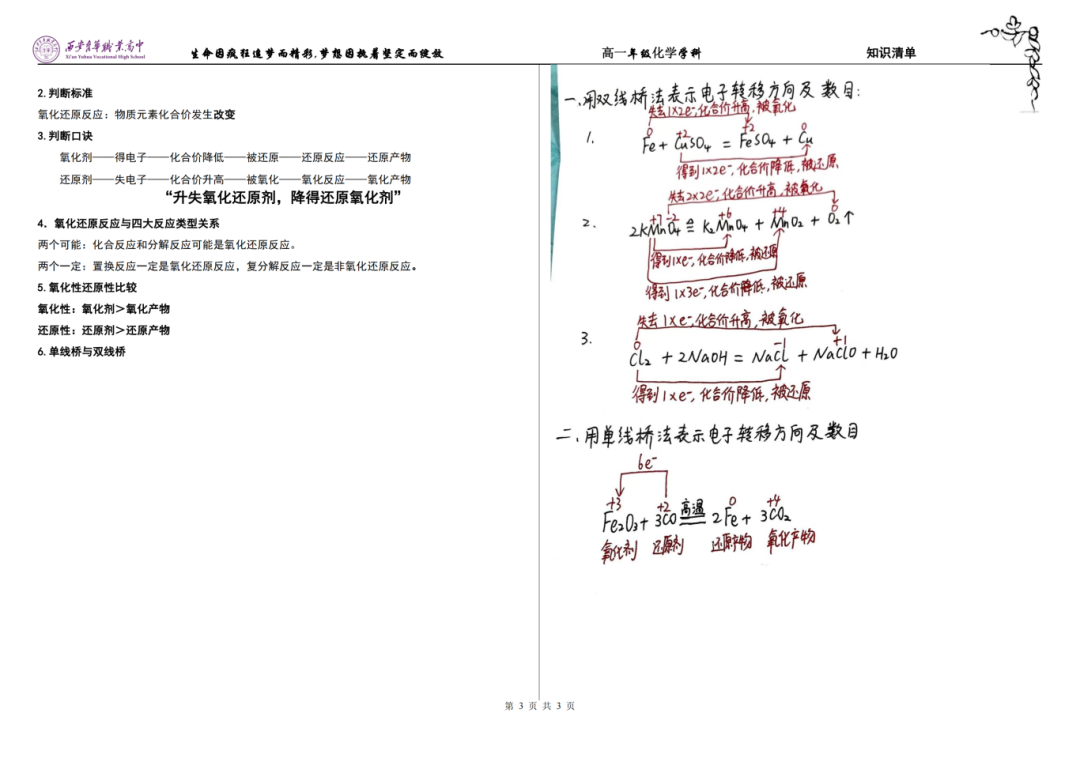 西安育华职业高中
Xi'an Yuhua Vocational High School
生命因疯狂追梦而精彩,梦想因执着坚定而绽放
高一年级化学学科
知识清单
2.判断标准
氧化还原反应：物质元素化合价发生改变
3.判断口诀
氧化剂——得电子——化合价降低——被还原——还原反应——还原产物
还原剂——失电子——化合价升高——被氧化——氧化反应——氧化产物
“升失氧化还原剂，降得还原氧化剂”
4．氧化还原反应与四大反应类型关系
两个可能：化合反应和分解反应可能是氧化还原反应。
两个一定：置换反应一定是氧化还原反应，复分解反应一定是非氧化还原反应。
5.氧化性还原性比较
氧化性：氧化剂＞氧化产物
还原性：还原剂＞还原产物
6.单线桥与双线桥
一、用双线桥法表示电子转移方向及数目:
失去1×2e⁻,化合价升高,被氧化
0 +2 +2 0
1. Fe + CuSO₄ = FeSO₄ + Cu
得到1×2e⁻,化合价降低,被还原
失去2×2e⁻,化合价升高,被氧化
+7 -2 +6 +4 0
2. 2KMnO₄ ≜ K₂MnO₄ + MnO₂ + O₂↑
得到1×e⁻,化合价降低,被还原
得到1×3e⁻,化合价降低,被还原
失去1×e⁻,化合价升高,被氧化
0 -1 +1
3. Cl₂ + 2NaOH = NaCl + NaClO + H₂O
得到1×e⁻,化合价降低,被还原
二、用单线桥法表示电子转移方向及数目
6e⁻
+3 +2 高温 0 +4
Fe₂O₃ + 3CO = 2Fe + 3CO₂
氧化剂 还原剂 还原产物 氧化产物
第 3 页 共 3 页